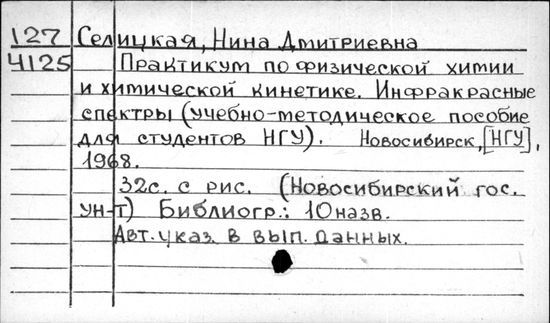 127 Селицкая, Нина Дмитриевна
4125 Практикум по физической химии
и химической кинетике. Инфракрасные
спектры (учебно-методическое пособие
для студентов НГУ). Новосибирск, [НГУ],
1968.
32с. с рис. (Новосибирский гос.
ун-т) Библиогр.: 10 назв.
Авт. указ. в вып. данных.